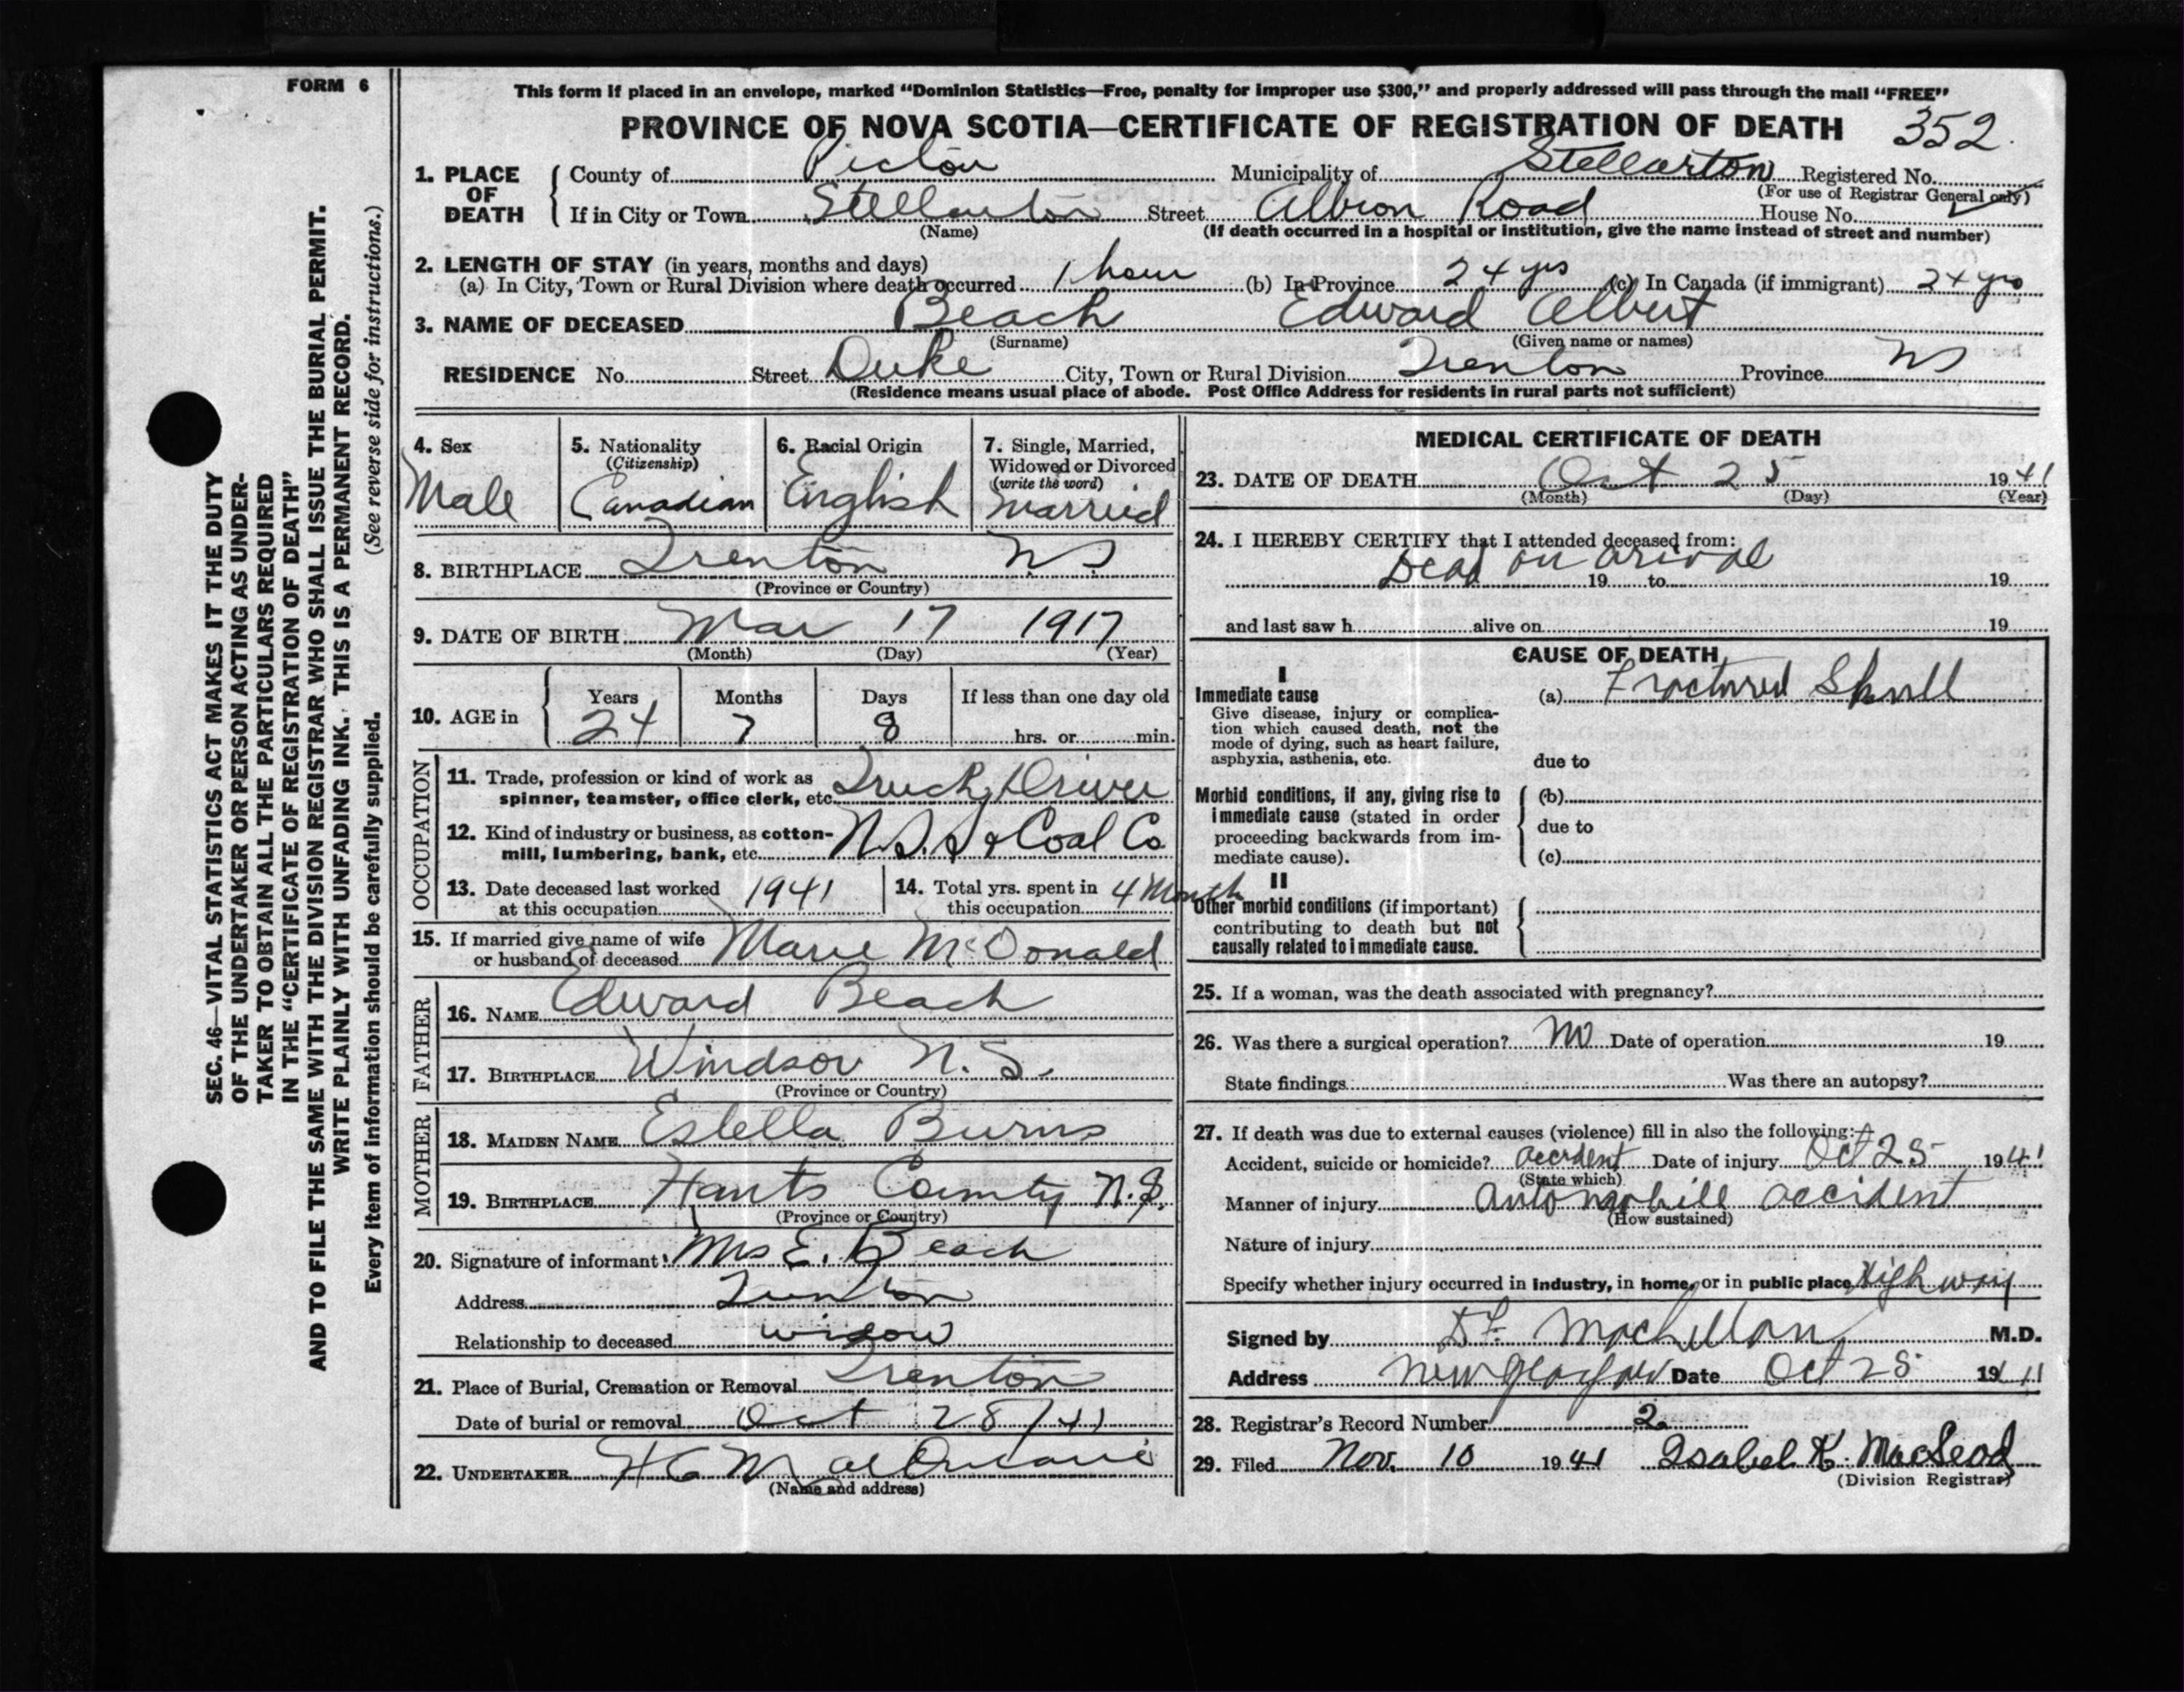 FORM 6
This form if placed in an envelope, marked "Dominion Statistics—Free, penalty for improper use $300," and properly addressed will pass through the mail "FREE"
PROVINCE OF NOVA SCOTIA—CERTIFICATE OF REGISTRATION OF DEATH 352.
1. PLACE OF DEATH
County of Pictou Municipality of Stellarton Registered No.
(For use of Registrar General only)
If in City or Town Stellarton Street Albion Road House No.
(Name) (If death occurred in a hospital or institution, give the name instead of street and number)
2. LENGTH OF STAY (in years, months and days)
(a) In City, Town or Rural Division where death occurred 1 hour (b) In Province 24 yrs (c) In Canada (if immigrant) 24 yrs
3. NAME OF DECEASED Beach Edward Albert
(Surname) (Given name or names)
RESIDENCE No. Street Duke City, Town or Rural Division Trenton Province NS
(Residence means usual place of abode. Post Office Address for residents in rural parts not sufficient)
4. Sex
Male
5. Nationality
(Citizenship)
Canadian
6. Racial Origin
English
7. Single, Married,
Widowed or Divorced
(write the word)
Married
8. BIRTHPLACE Trenton N.S
(Province or Country)
9. DATE OF BIRTH Mar 17 1917
(Month) (Day) (Year)
10. AGE in
Years Months Days If less than one day old
24 7 8 hrs. or min.
OCCUPATION
11. Trade, profession or kind of work as
spinner, teamster, office clerk, etc. Truck Driver
12. Kind of industry or business, as cotton-
mill, lumbering, bank, etc. N.S. S & Coal Co
13. Date deceased last worked
at this occupation 1941
14. Total yrs. spent in
this occupation 4 Month
15. If married give name of wife
or husband of deceased Marie McDonald
FATHER
16. NAME Edward Beach
17. BIRTHPLACE Windsor N.S.
(Province or Country)
MOTHER
18. MAIDEN NAME Estella Burns
19. BIRTHPLACE Hants County N.S.
(Province or Country)
20. Signature of informant Mrs E. Beach
Address Trenton
Relationship to deceased widow
21. Place of Burial, Cremation or Removal Trenton
Date of burial or removal Oct 28/41
22. UNDERTAKER
(Name and address)
MEDICAL CERTIFICATE OF DEATH
23. DATE OF DEATH Oct 25 1941
(Month) (Day) (Year)
24. I HEREBY CERTIFY that I attended deceased from:
Dead on arival
19 to 19
and last saw h alive on 19
CAUSE OF DEATH
I
Immediate cause
Give disease, injury or complica-
tion which caused death, not the
mode of dying, such as heart failure,
asphyxia, asthenia, etc.
(a) Fractured Skull
due to
Morbid conditions, if any, giving rise to
immediate cause (stated in order
proceeding backwards from im-
mediate cause).
(b)
due to
(c)
II
Other morbid conditions (if important)
contributing to death but not
causally related to immediate cause.
25. If a woman, was the death associated with pregnancy?
26. Was there a surgical operation? No Date of operation 19
State findings Was there an autopsy?
27. If death was due to external causes (violence) fill in also the following:—
Accident, suicide or homicide? accident Date of injury Oct 25 1941
(State which)
Manner of injury automobill accident
(How sustained)
Nature of injury
Specify whether injury occurred in industry, in home, or in public place High way
Signed by M.D.
Address New Glasgow Date Oct 25 1941
28. Registrar's Record Number 2
29. Filed Nov. 10 1941 Isabel K. MacLeod
(Division Registrar)
SEC. 46—VITAL STATISTICS ACT MAKES IT THE DUTY
OF THE UNDERTAKER OR PERSON ACTING AS UNDER-
TAKER TO OBTAIN ALL THE PARTICULARS REQUIRED
IN THE "CERTIFICATE OF REGISTRATION OF DEATH"
AND TO FILE THE SAME WITH THE DIVISION REGISTRAR WHO SHALL ISSUE THE BURIAL PERMIT.
WRITE PLAINLY WITH UNFADING INK. THIS IS A PERMANENT RECORD.
Every item of information should be carefully supplied. (See reverse side for instructions.)